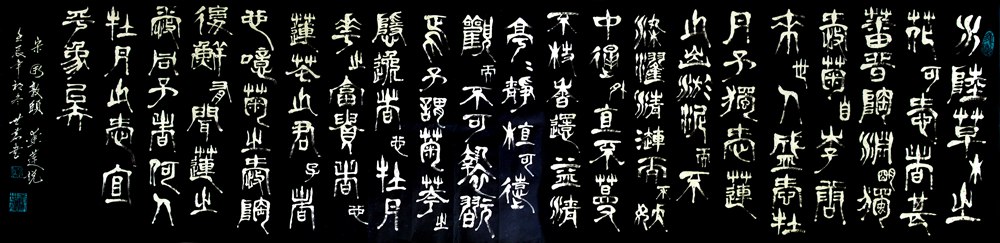 水陸草木之
花可愛者甚
蕃晉陶淵明獨
愛菊自李唐
來世人盛愛牡
丹予獨愛蓮
之出淤泥而不
染濯清漣而不妖
中通外直不蔓
不枝香遠益清
亭〻靜植可遠
觀而不可褻翫
焉予謂菊華之
隱逸者也牡丹
華之富貴者也
蓮花之君子者
也噫菊之愛陶
後鮮有聞蓮之
愛同予者何人
牡丹之愛宜
乎衆矣
宋周敦頤愛蓮說
壬辰年